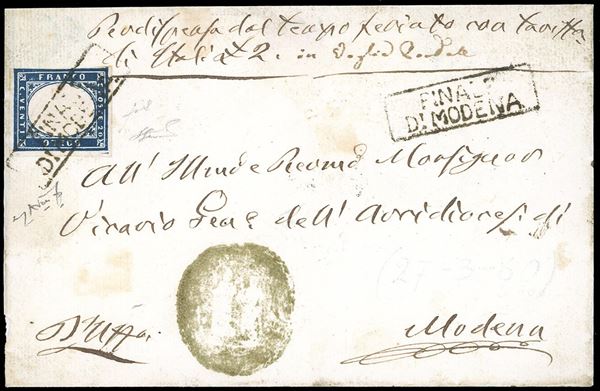 Per dispensa dal tempo feriato con tassa
di Italia£ 2. in
FRANCO
C. VENTI
C.20
FINALE
DI MODENA
FINALE
DI MODENA
All' Illmo e Revmo Monsignor
Vicario Genle dell' Arcidiocesi di
(27-3-60)
D'Uffo.
Modena